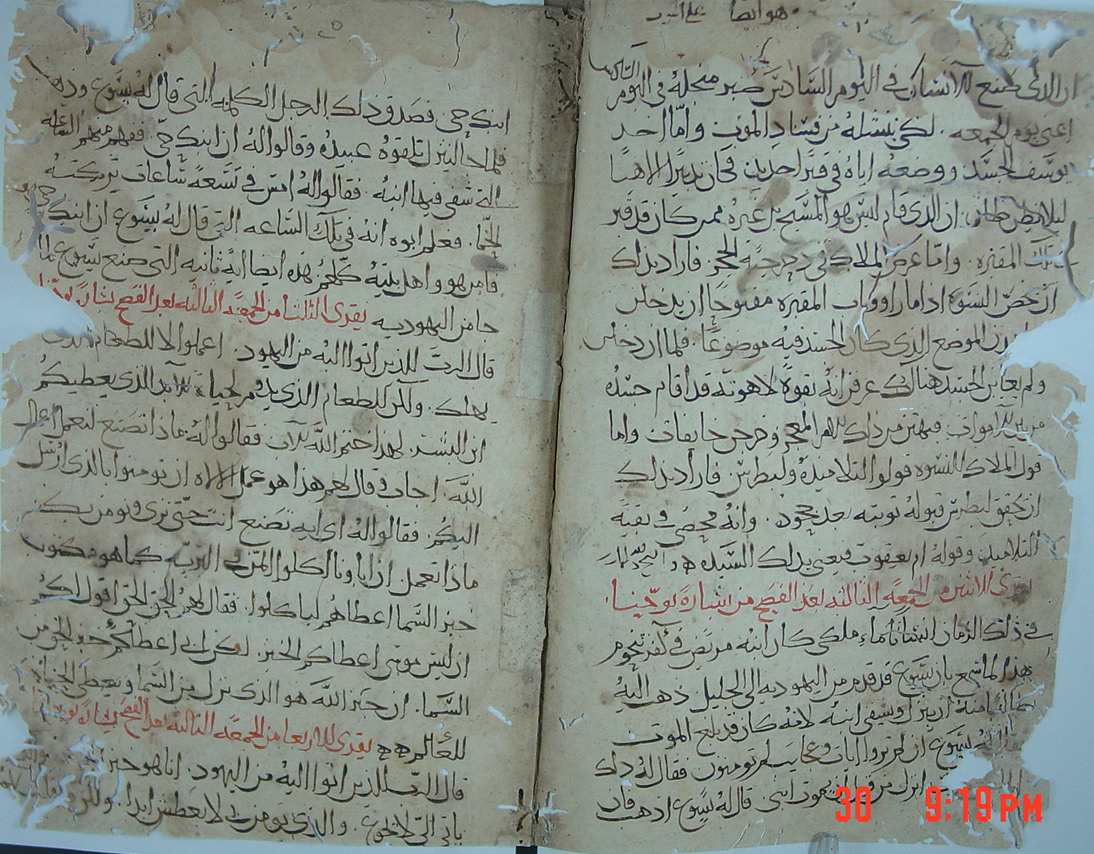 هو ايضا
ان الذى صنع الانسان فى اليوم السادس صبر منجله فى اليوم
اعنى يوم الجمعه. لكى ينشله من فساد الموت واما اخد
يوسف الجسد ووضعه اياه فى قبر احد فكان تدبيرا الاهيا
ليلا يظن ان الذى قام ليس هو المسيح بل غيره ممن كان قد قبر
تلك المقبره. واما عرض الملاك فى دحرجة الحجر فاراد بذلك
ان خص النسوه اذا ما راوا باب المقبره مفتوحا ان يدخلن
الموضع الذى كان الجسد فيه موضوعا. فلما ان دخلن
ولم يعاين الجسد هناك عرفن انه بقوة لاهوته قد اقام جسده
من الاموات فبهتن من ذلك الامر المعجز وخرجن خايفات واما
قول الملاك للنسوه قولوا لتلاميذه ولبطرس فاراد بذلك
ان يحقق لبطرس قبوله توبته بعد جحوده. وانه محصى فى بقية
التلاميذ وقوله ام يعقوب فيعنى بذلك السيده
يقرى الاثنين من الجمعه الثالثه بعد الفصح من بشارة يوحنا
فى ذلك الزمان انسانا ما ملكى كان ابنه مريض فى كفرنحوم
هذا لما سمع بان يسوع قد قدم من اليهوديه الى الجليل ذهب اليه
طالبا منه ان ينزل ويشفى ابنه لانه كان قد بلغ الموت
له يسوع ان لم تروا ايات وعجايب لم تومنون فقال له ذلك
انزل من قبل ان يموت ابنى. قال له يسوع اذهب فان
ابنك حى فصدق ذلك الرجل الكلمه التى قال له يسوع وذهب
فلما نزل تلقوه عبيده وقالوا له ان ابنك حى ففهم منهم الساعه
التى شفى فيها ابنه. فقالوا له امس فى تسعة ساعات تركته
الحما. فعلم ابوه انه فى تلك الساعه التى قال له يسوع ان ابنك حى
فامن هو واهل بيته كلهم. هذه ايضا ايه ثانيه التى صنع يسوع لما
جا من اليهوديه يقرى الثلثا من الجمعه الثالثه بعد الفصح بشارة يوحنا
قال الرب للذين اتوا اليه من اليهود. اعملوا لا للطعام
يهلك. ولكن للطعام الذى يدوم لحياة الابد الذى يعطيكم
ابن البشر. لهذا ختم الله الاب فقالوا له ماذا نصنع لنعمل اعمال
الله. اجاب وقال لهم هذا هو عمل الاه ان تومنوا بالذى ارسل
اليكم. فقالوا له اى ايه تصنع انت حتى نرى ونومن بك
ماذا تعمل ان ابآونا اكلوا المن فى البريه كما هو مكتوب
خبز السما اعطاهم لياكلوا. فقال لهم الحق الحق اقول لكم
ان ليس موسى اعطاكم الخبز. لكن ابى اعطاكم خبز الحق من
السما. ان خبز الله هو الذى نزل من السما ويعطى الحياة
للعالم يقرى الاربعا من الجمعه الثالثه بعد الفصح بشارة يوحنا
قال الرب للذين اتوا اليه من اليهود. انا هو خبز
ياتى الى لا يجوع. والذى يومن بى لا يعطش ابدا. ولكن
30 9:19 PM